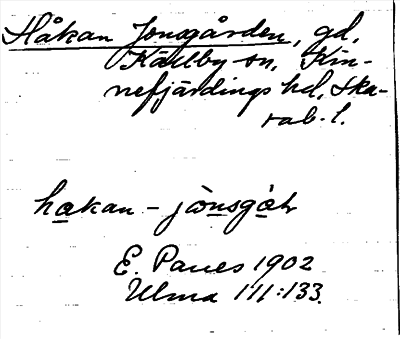 Håkan Jonsgården, gd,
Källby sn, Kin-
nefjärdings hd, Ska-
rab. l.
hakan - jònsgåɫ
E. Paues 1902
Ulma 111:133.